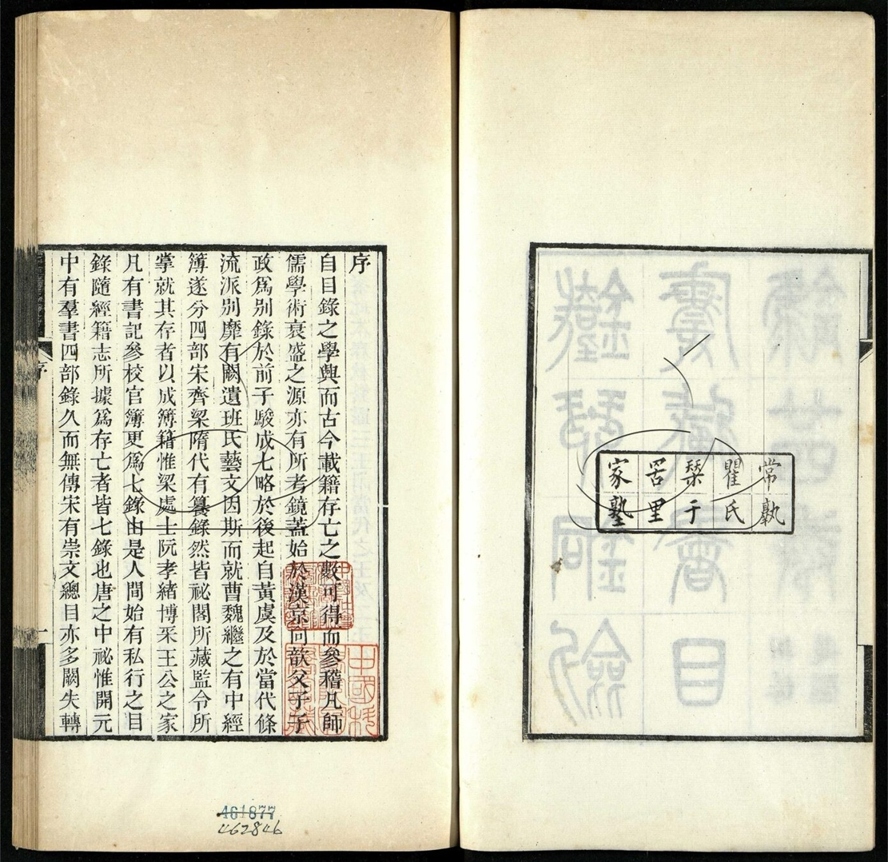 常孰
瞿氏
栞于
罟里
家塾
序
自目錄之學興而古今載籍存亡之數可得而參稽凡師
儒學術衰盛之源亦有所考鏡蓋始於漢京向歆父子子
政爲別錄於前子駿成七略於後起自黃虞及於當代條
流派別靡有闕遺班氏藝文因斯而就曹魏繼之有中經
簿遂分四部宋齊梁隋代有纂錄然皆祕閣所藏監令所
掌就其存者以成簿籍惟梁處士阮孝緒博采王公之家
凡有書記參校官簿更爲七錄由是人間始有私行之目
錄隨經籍志所據爲存亡者皆七錄也唐之中祕惟開元
中有羣書四部錄久而無傳宋有崇文總目亦多闕失轉
序
一
461877
462846